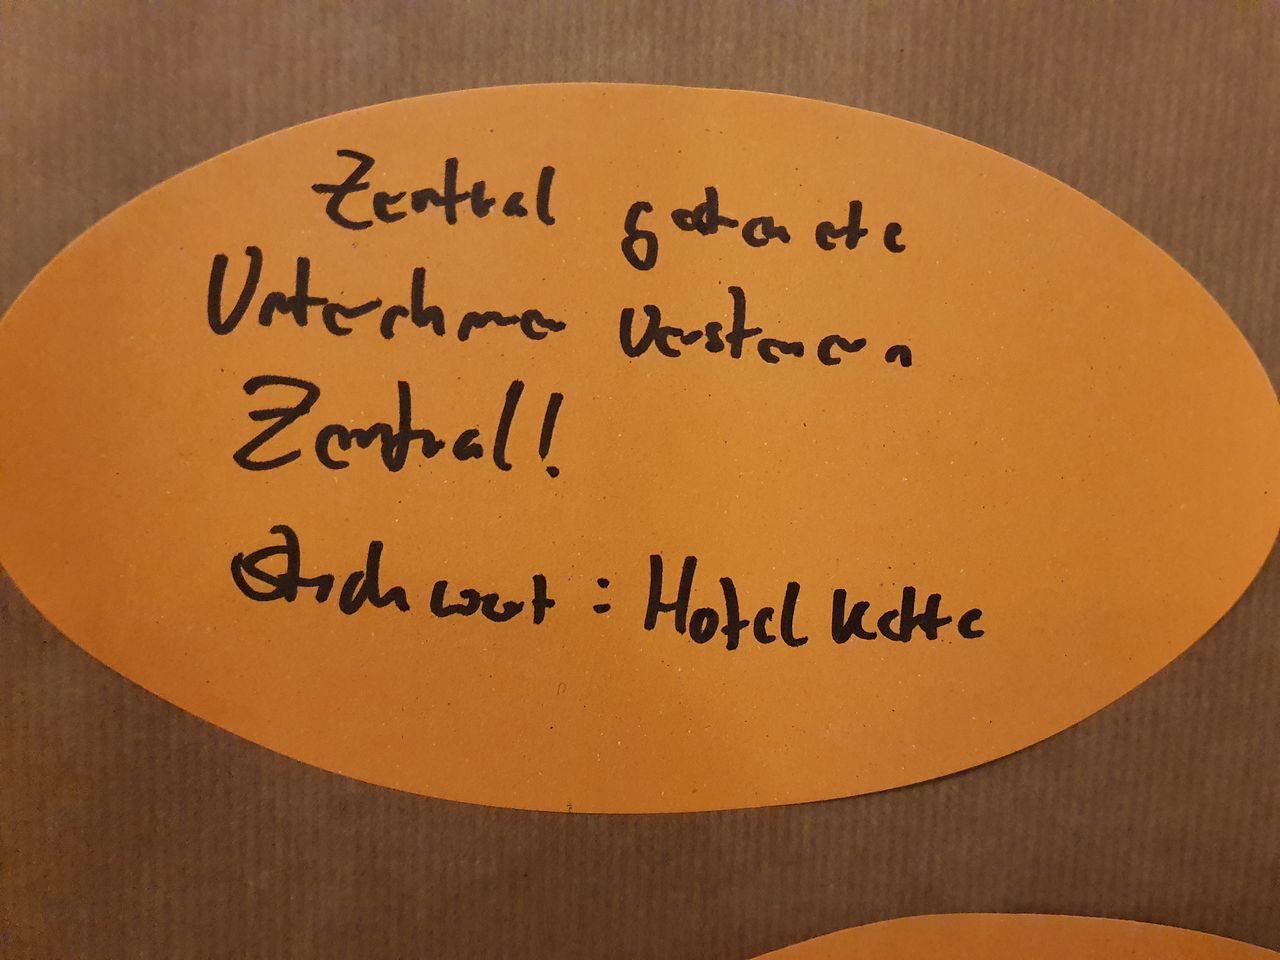 Zentral
Unternehmen versteuern
Zentral!
Stichwort: Hotelkette